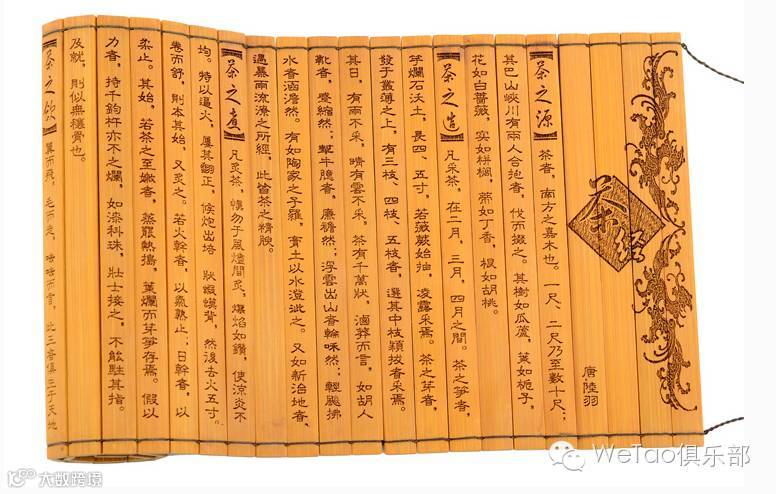 茶經
唐陸羽
茶之源 茶者，南方之嘉木也。一尺、二尺乃至數十尺；
其巴山峽川有兩人合抱者，伐而掇之。其樹如瓜蘆，葉如梔子，
花如白薔薇，实如栟櫚，蒂如丁香，根如胡桃。
茶之造 凡采茶，在二月、三月、四月之間。茶之笋者，
笋爛石沃土，長四、五寸，若薇蕨始抽，凌露采焉。茶之芽者，
發于叢薄之上，有三枝、四枝、五枝者，選其中枝穎拔者采焉。
其日，有雨不采，晴有雲不采，茶有千萬狀，鹵莽而言，如胡人
靴者，蹙縮然；犎牛臆者，廉襜然；浮雲出山者輪囷然；輕飈拂
水者涵澹然。有如陶家之子羅，膏土以水澄泚之。又如新治地者，
遇暴雨流潦之所經，此皆茶之精腴。
茶之煮 凡炙茶，慎勿于風燼間炙，熛焰如鑽，使涼炎不
均。特以逼火，屢其翻正，候炮出培 狀蝦蟆背，然後去火五寸。
卷而舒，則本其始，又炙之。若火幹者，以氣熟止；日幹者，以
柔止。其始，若茶之至嫩者，蒸罷熱搗，葉爛而芽笋存焉。假以
力者，持千鈞杵亦不之爛，如漆科珠，壯士接之，不能駐其指。
及就，則似無穰骨也。
茶之飲 翼而飛，毛而走，呿而言，此三者俱生于天地
大数跨境
WeTao俱乐部